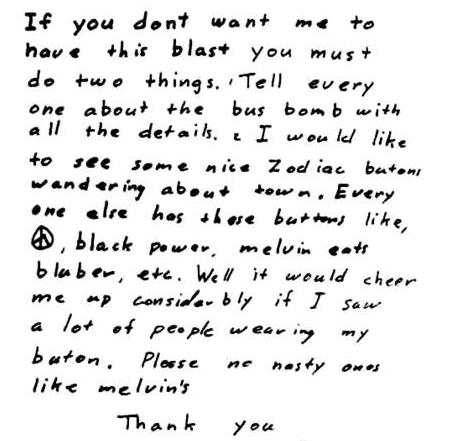 If you dont want me to
have this blast you must
do two things. 1 Tell every
one about the bus bomb with
all the details. 2 I would like
to see some nice Zodiac butons
wandering about town. Every
one else has these buttons like,
☮, black power, melvin eats
bluber, etc. Well it would cheer
me up considerbly if I saw
a lot of people wearing my
buton. Please no nasty ones
like melvin's
Thank you